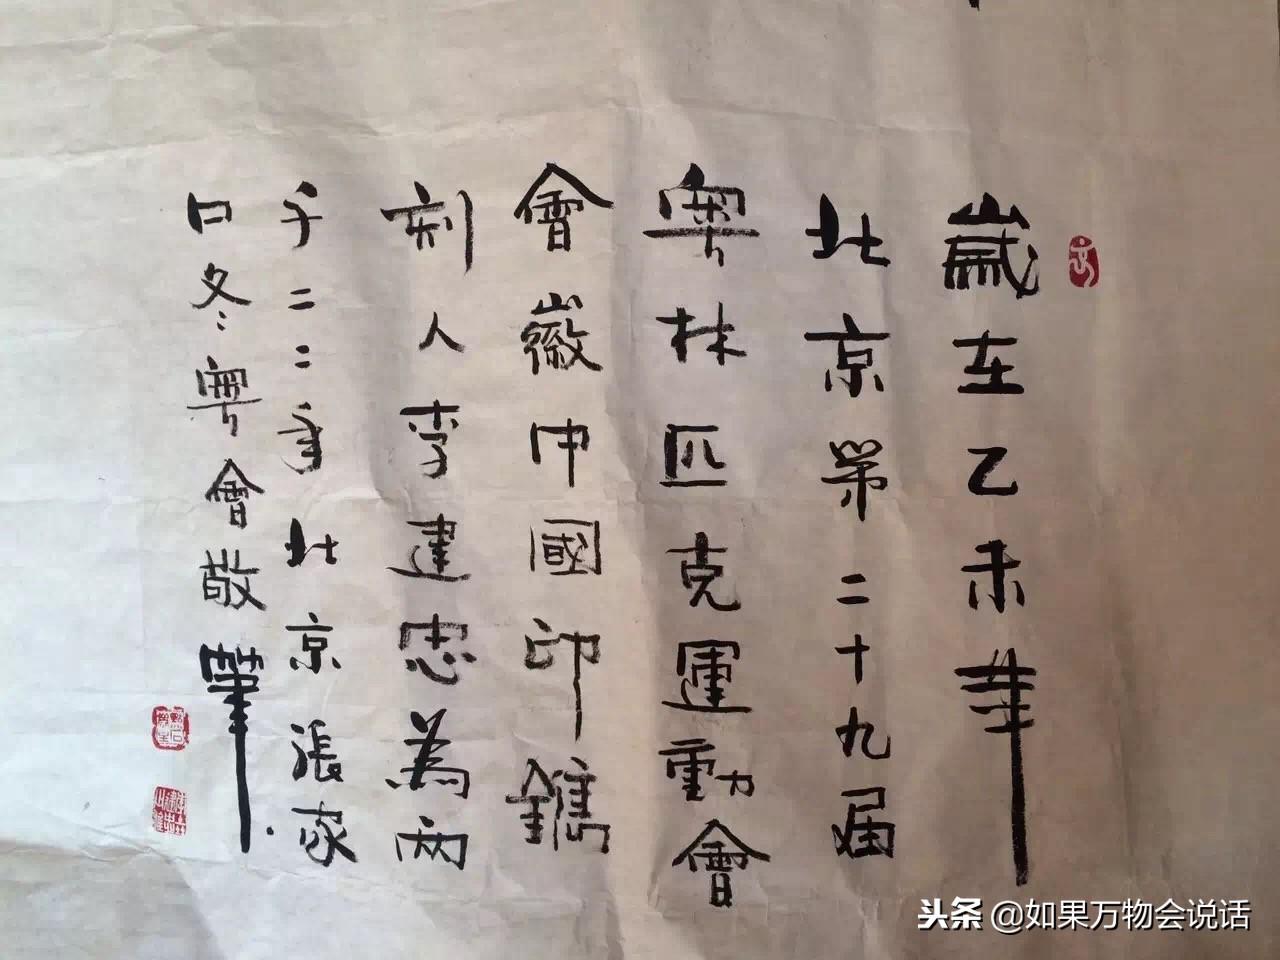 歲在乙未年
北京第二十九届
奧林匹克運動會
會徽中國印鐫
刻人李建忠為兩
千二二年北京張家
口冬奧會敬筆
头条 @如果万物会说话